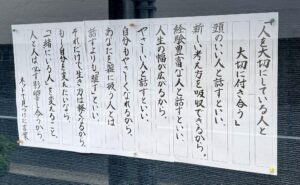 「人を大切にしている人と
大切に付き合う」
頭のいい人と話すといい、
新しい考え方を吸収できるから。
経験豊富な人と話すといい、
人生の幅が広がるから。
やさしい人と話すといい、
自分もやさしくなれるから。
あなたを親に
話すより
それだけで生き方は
もし自分を変えたいなら、
「一緒にいる人」を変えること。
人と人は必ず影響し合うから。
ネットで見つけた言葉